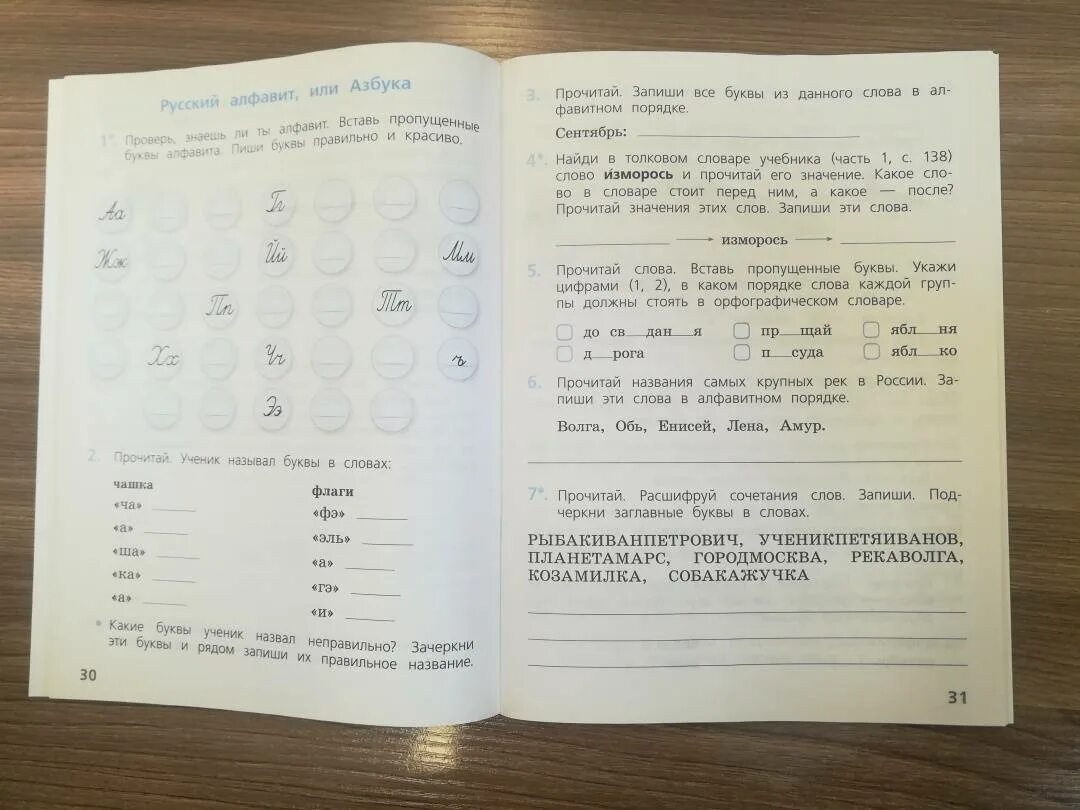 Русский алфавит, или Азбука
1*. Проверь, знаешь ли ты алфавит. Вставь пропущенные
буквы алфавита. Пиши буквы правильно и красиво.
Аа Гг
Жж Йй Мм
Пп Тт
Хх Чч ъ
Ээ
2. Прочитай. Ученик называл буквы в словах:
чашка
«ча» ______
«а» ______
«ша» ______
«ка» ______
«а» ______
флаги
«фэ» ______
«эль» ______
«а» ______
«гэ» ______
«и» ______
• Какие буквы ученик назвал неправильно? Зачеркни
эти буквы и рядом запиши их правильное название.
30
3. Прочитай. Запиши все буквы из данного слова в ал-
фавитном порядке.
Сентябрь: ______
4*. Найди в толковом словаре учебника (часть 1, с. 138)
слово и́зморось и прочитай его значение. Какое сло-
во в словаре стоит перед ним, а какое — после?
Прочитай значения этих слов. Запиши эти слова.
______ → изморось → ______
5. Прочитай слова. Вставь пропущенные буквы. Укажи
цифрами (1, 2), в каком порядке слова каждой груп-
пы должны стоять в орфографическом словаре.
до св__дан__я пр__щай ябл__ня
д__рога п__суда ябл__ко
6. Прочитай названия самых крупных рек в России. За-
пиши эти слова в алфавитном порядке.
Волга, Обь, Енисей, Лена, Амур.
7*. Прочитай. Расшифруй сочетания слов. Запиши. Под-
черкни заглавные буквы в словах.
РЫБАКИВАНПЕТРОВИЧ, УЧЕНИКПЕТЯИВАНОВ,
ПЛАНЕТАМАРС, ГОРОДМОСКВА, РЕКАВОЛГА,
КОЗАМИЛКА, СОБАКАЖУЧКА
31